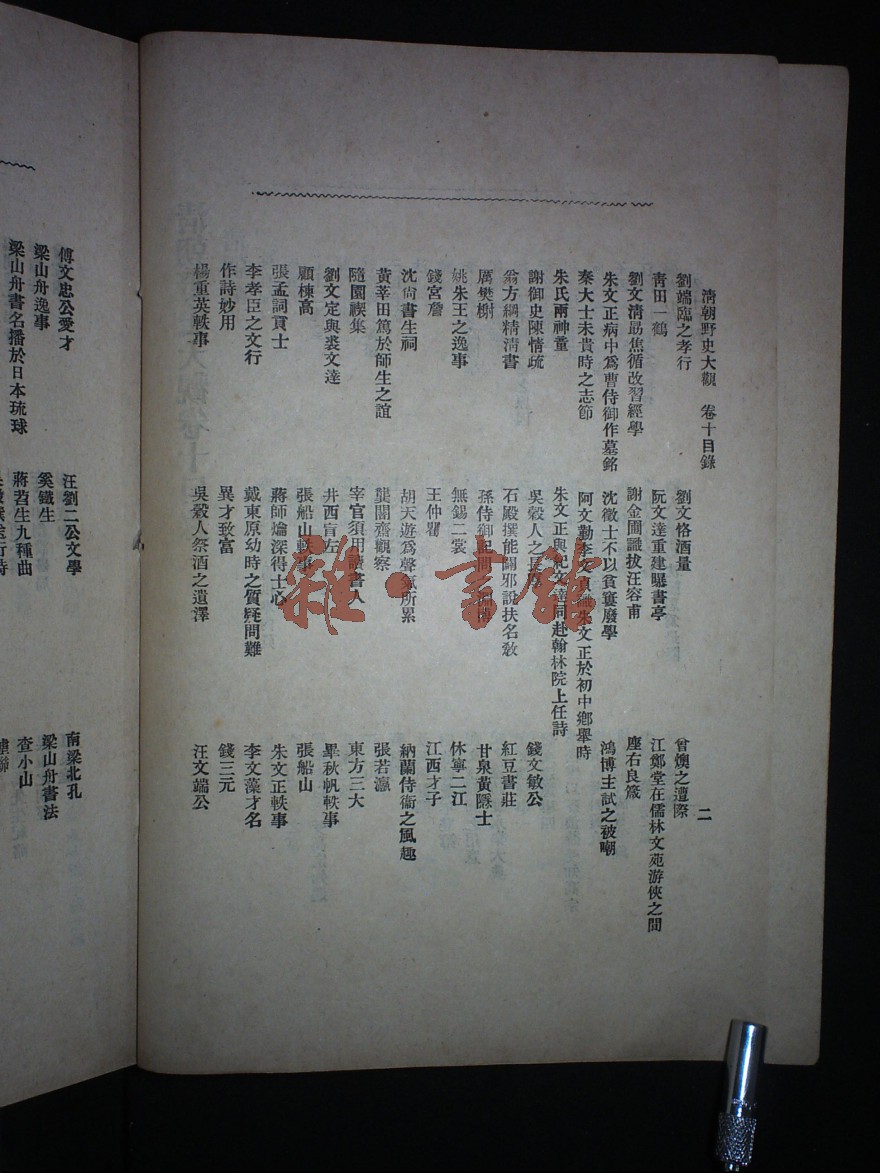 清朝野史大觀 卷十目錄 二
劉端臨之孝行 劉文恪酒量 曾燠之遭際
青田一鶴 阮文達重建曝書亭 江鄭堂在儒林文苑游俠之間
劉文清勗焦循改習經學 謝金圃識拔汪容甫 座右良箴
朱文正病中爲曹侍御作墓銘 沈徵士不以貧窶廢學 鴻博主試之被嘲
秦大士未貴時之志節 阿文勤李文貞識朱文正於初中鄉舉時
朱氏兩神童 朱文正與紀文達同赴翰林院上任詩
謝御史陳情疏 吳穀人之長厚 錢文敏公
翁方綱精清書 石殿撰能闢邪說扶名敎 紅豆書莊
厲樊榭 孫侍御記問之淵博 甘泉黃隱士
姚朱王之逸事 無錫二裳 休寧二江
錢宮詹 王仲瞿 江西才子
沈尙書生祠 胡天遊爲聲氣所累 納蘭侍衛之風趣
黃莘田篤於師生之誼 龔闇齋觀察 張若瀛
隨園禊集 宰官須用讀書人 東方三大
劉文定與裘文達 井西盲左 畢秋帆軼事
顧棟高 張船山軼事 張船山
張孟詞貢士 蔣師爚深得士心 朱文正軼事
李孝臣之文行 戴東原幼時之質疑問難 李文藻才名
作詩妙用 異才致富 錢三元
楊重英軼事 吳穀人祭酒之遺澤 汪文端公
傅文忠公愛才 汪劉二公文學 南梁北孔
梁山舟逸事 奚鐵生 梁山舟書法
梁山舟書名播於日本琉球 蔣苕生九種曲 查小山
雜·書館